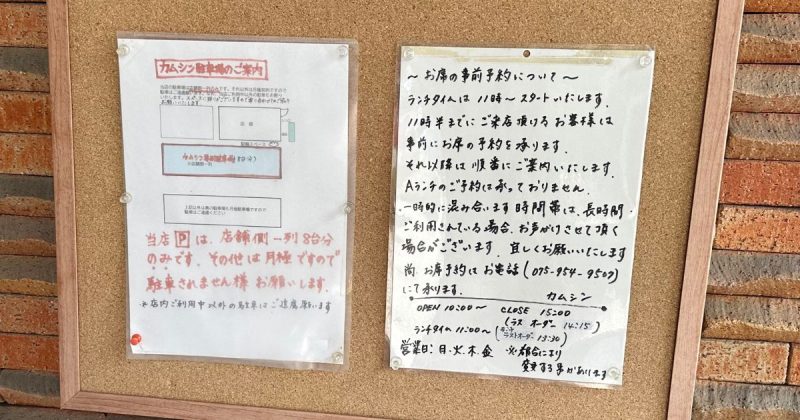 カムシン駐車場のご案内
店舗
カムシン専用駐車場(8台分)
当店Pは、店舗側一列8台分
のみです。その他は月極ですので
駐車されません様お願いします。
※店内ご利用中以外の駐車はご遠慮願います
～お席の事前予約について～
ランチタイムは11時～スタートいたします。
11時半までにご来店頂けるお客様は
事前にお席の予約を承ります。
それ以降は順番にご案内いたします。
Aランチのご予約は承っておりません。
一時的に混み合います時間帯は、長時間
ご利用されている場合、お声がけさせて頂く
場合がございます。宜しくお願いいたします
尚、お席予約はお電話(075-954-9507)
にて承ります。
カムシン
OPEN 10:00～ CLOSE 15:00
(ラストオーダー 14:15)
ランチタイム 11:00～(ランチラストオーダー 13:30)
営業日:日・火・木・金 ※都合により
変更する事があります